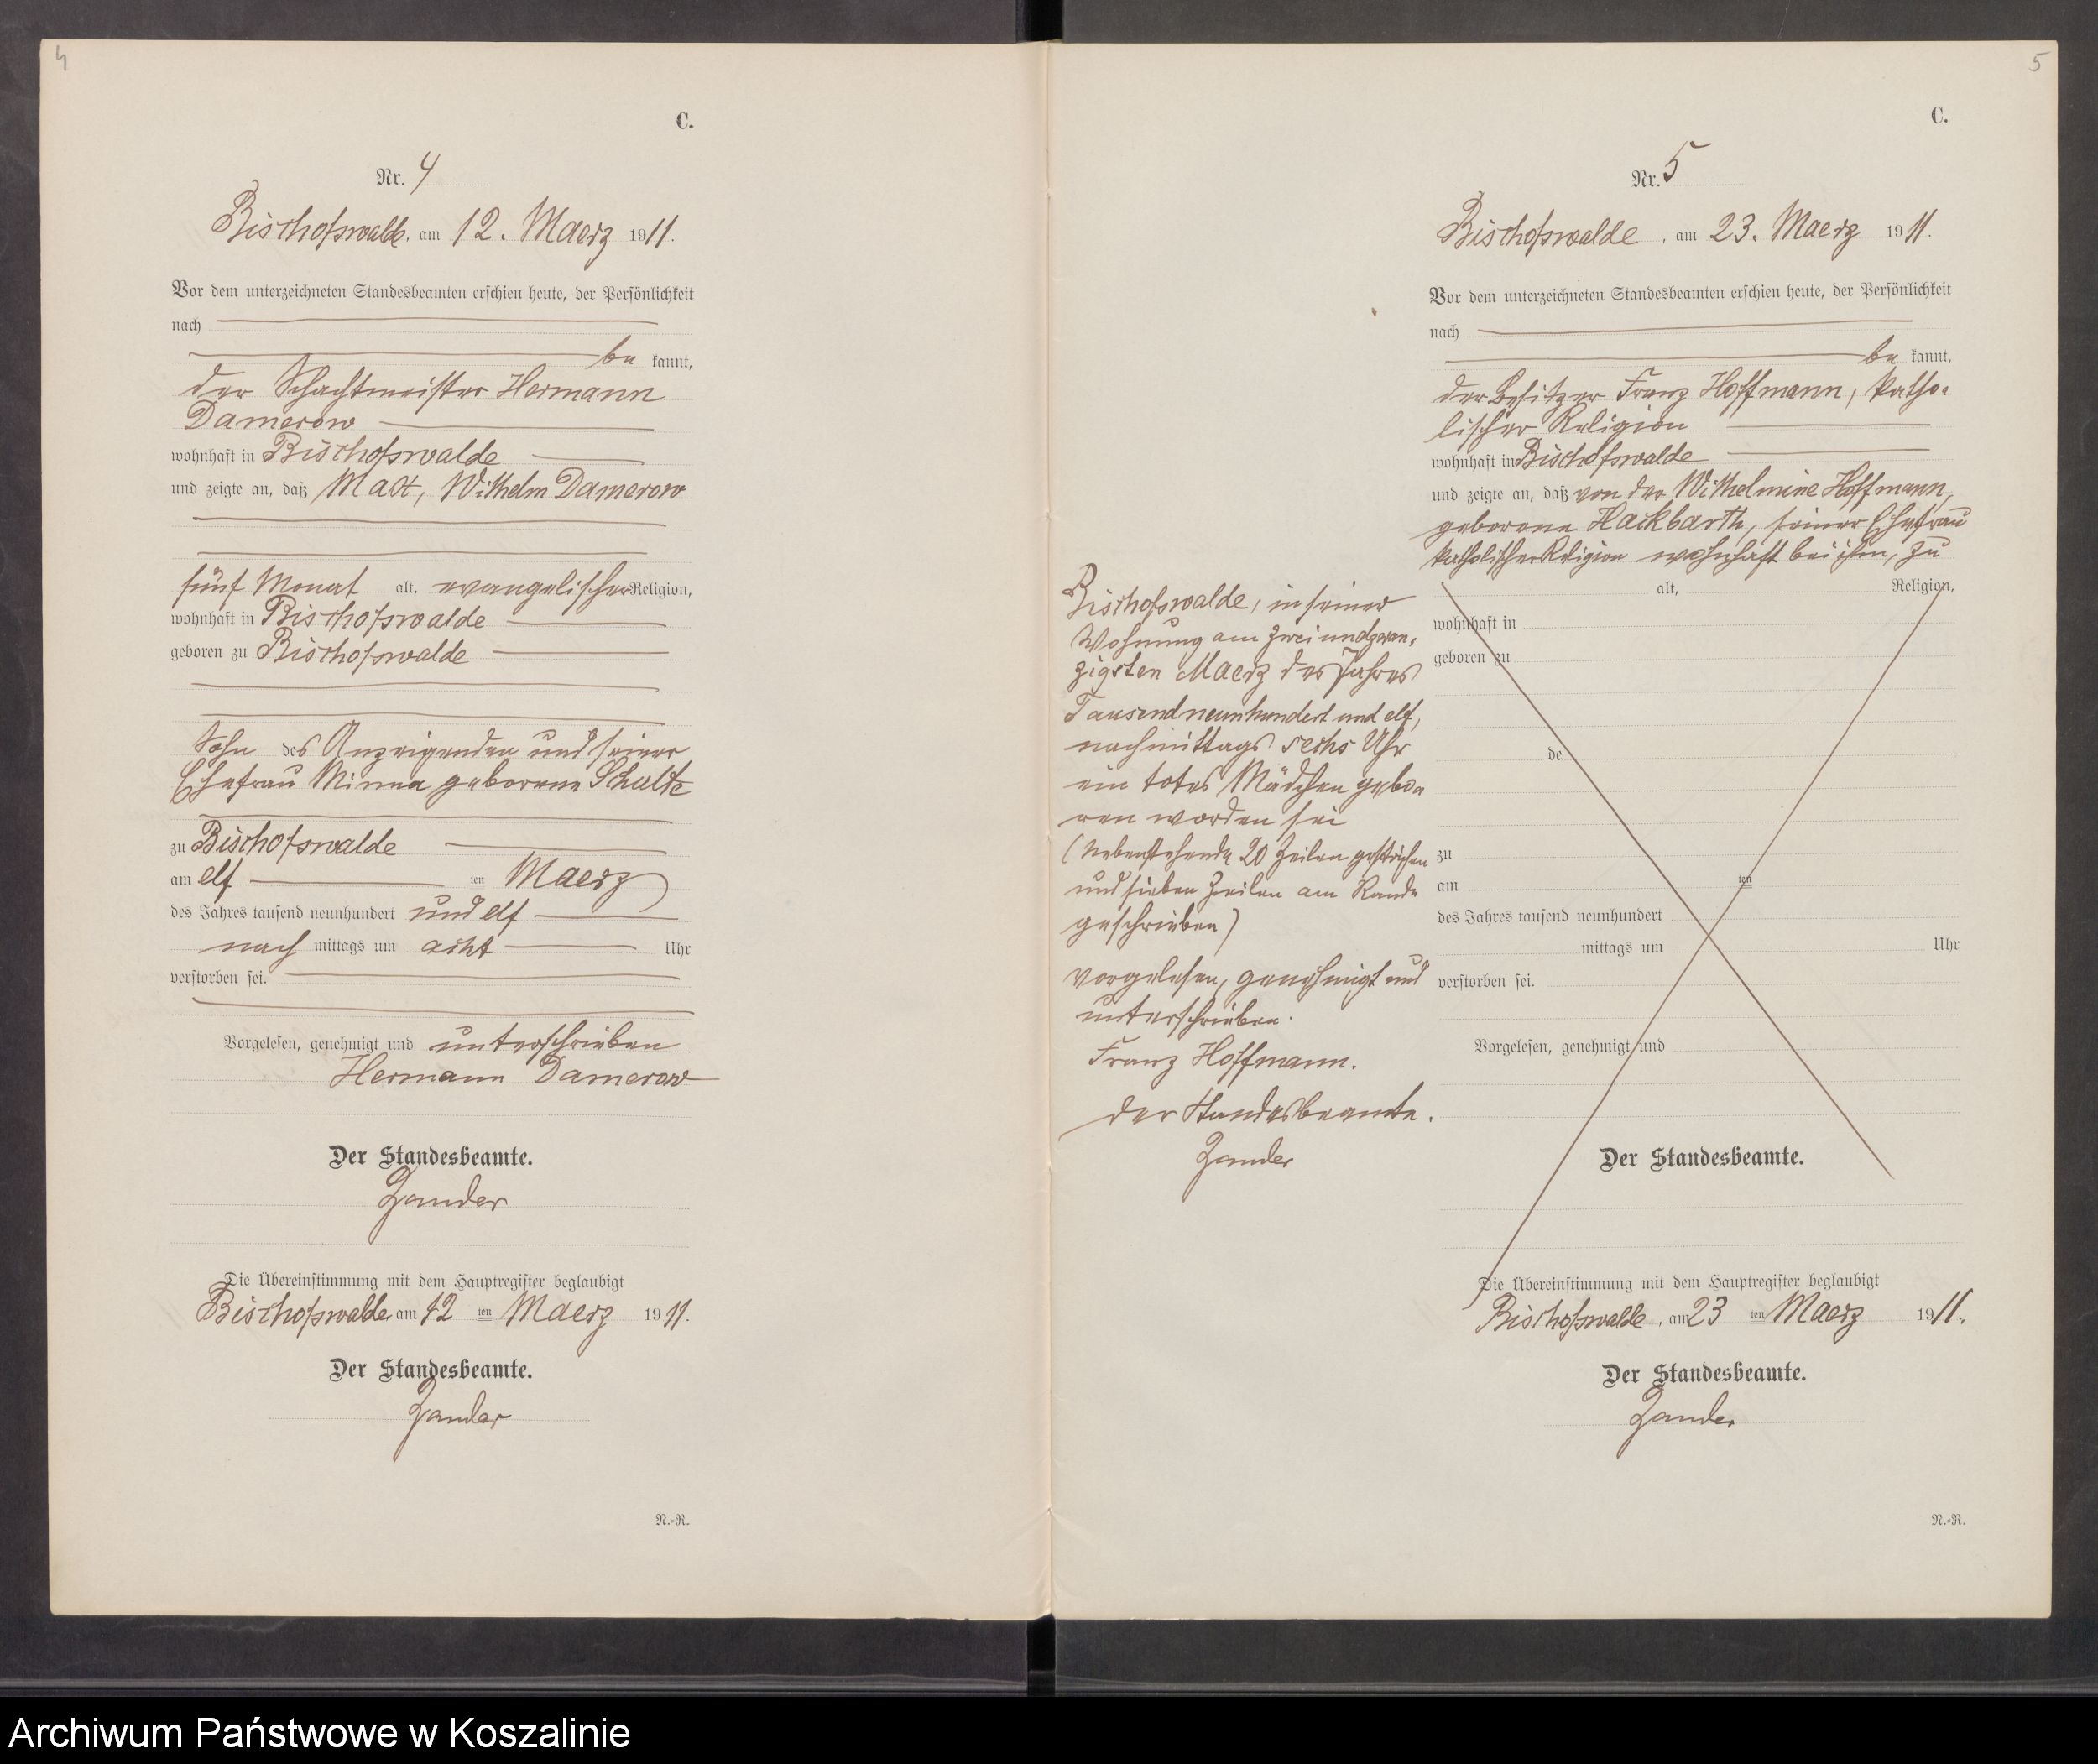 4
C.
Nr. 4
Bischofswalde, am 12. Maerz 1911.
Vor dem unterzeichneten Standesbeamten erschien heute, der Persönlichkeit
nach
be kannt,
der Schachtmeister Hermann
Damerow
wohnhaft in Bischofswalde
und zeigte an, daß Max, Wilhelm Damerow
fünf Monat alt, evangelischer Religion,
wohnhaft in Bischofswalde
geboren zu Bischofswalde
Sohn des Anzeigenden und seiner
Ehefrau Minna geborene Schulte
zu Bischofswalde
am elf ten Maerz
des Jahres tausend neunhundert und elf
nach mittags um acht Uhr
verstorben sei.
Vorgelesen, genehmigt und unterschrieben
Hermann Damerow
Der Standesbeamte.
Zander
Die Übereinstimmung mit dem Hauptregister beglaubigt
Bischofswalde am 12 ten Maerz 1911.
Der Standesbeamte.
Zander
N.-R.
5
C.
Nr. 5
Bischofswalde, am 23. Maerz 1911.
Vor dem unterzeichneten Standesbeamten erschien heute, der Persönlichkeit
nach
be kannt,
der Besitzer Franz Hoffmann, katho-
lischer Religion
wohnhaft in Bischofswalde
und zeigte an, daß von der Wilhelmine Hoffmann,
geborene Hackbarth, seiner Ehefrau
katholischer Religion wohnhaft bei ihm, zu
Bischofswalde, in seiner
Wohnung am zweiundzwan-
zigsten Maerz des Jahres
Tausendneunhundert und elf,
nachmittags sechs Uhr
ein totes Mädchen gebo-
ren worden sei
(Nebenstehende 20 Zeilen gestrichen
und sieben Zeilen am Rande
geschrieben)
vorgelesen, genehmigt und
unterschrieben.
Franz Hoffmann.
Der Standesbeamte.
Zander
alt, Religion,
wohnhaft in
geboren zu
de
zu
am ten
des Jahres tausend neunhundert
mittags um Uhr
verstorben sei.
Vorgelesen, genehmigt und
Der Standesbeamte.
Die Übereinstimmung mit dem Hauptregister beglaubigt
Bischofswalde, am 23 ten Maerz 1911.
Der Standesbeamte.
Zander
N.-R.
Archiwum Państwowe w Koszalinie